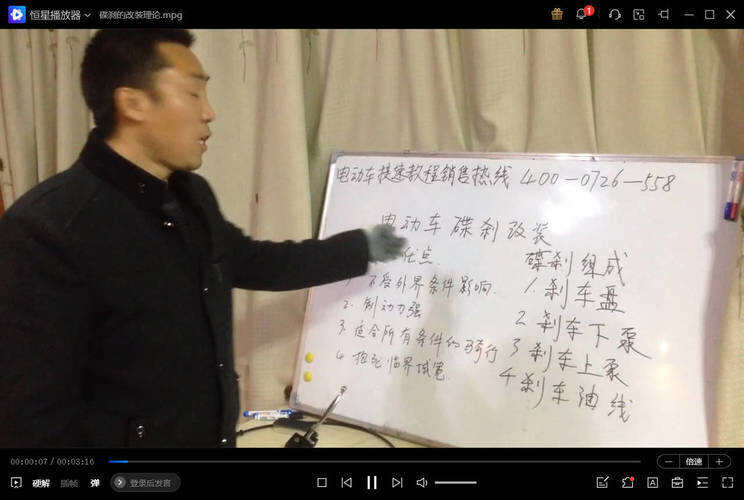 恒星播放器
碟刹的改装理论.mpg
1
电动车提速教程销售热线 400-0726-558
电动车碟刹改装
优点
1. 不受外界条件影响
2. 制动力强
3. 适合所有条件的骑行
4. 抱死临界域宽
碟刹组成
1. 刹车盘
2 刹车下泵
3 刹车上泵
4 刹车油线
00:00:07 / 00:03:16
倍速
硬解
插帧
弹
登录后发言